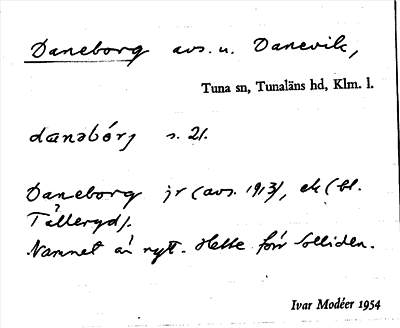 Daneborg avs. u. Danevik,
Tuna sn, Tunaläns hd, Klm. l.
danəbórj s. 21.
Daneborg jr (avs. 1913), ek (bl.
Tälleryd).
Namnet är nytt. Hette förr Solliden.
Ivar Modéer 1954